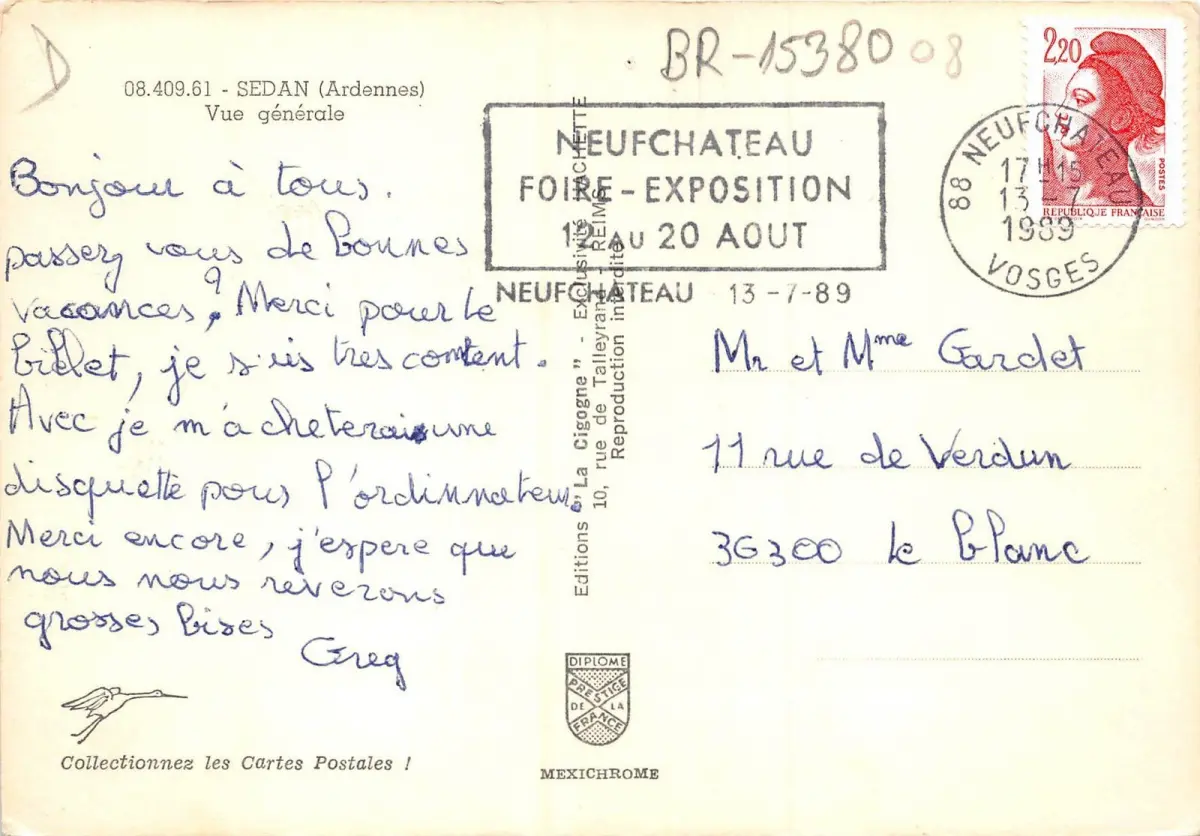 D
BR-15380 08
08.409.61 - SEDAN (Ardennes)
Vue générale
Bonjour à tous.
passez vous de bonnes
vacances? Merci pour le
billet, je suis tres content.
Avec je m'acheterais une
disquette pour l'ordinnateur.
Merci encore, j'espere que
nous nous reverons
grosses bises
Greg
Collectionnez les Cartes Postales !
Editions "La Cigogne" - Exclusivité HACHETTE
10, rue de Talleyrand - REIMS
Reproduction interdite
DIPLOME
PRESTIGE
DE LA
FRANCE
MEXICHROME
NEUFCHATEAU
FOIRE - EXPOSITION
12 AU 20 AOUT
NEUFCHATEAU 13-7-89
2,20
POSTES
REPUBLIQUE FRANÇAISE
88 NEUFCHATEAU
17H15
13-7
1989
VOSGES
Mr et Mme Gardet
11 rue de Verdun
36300 le blanc